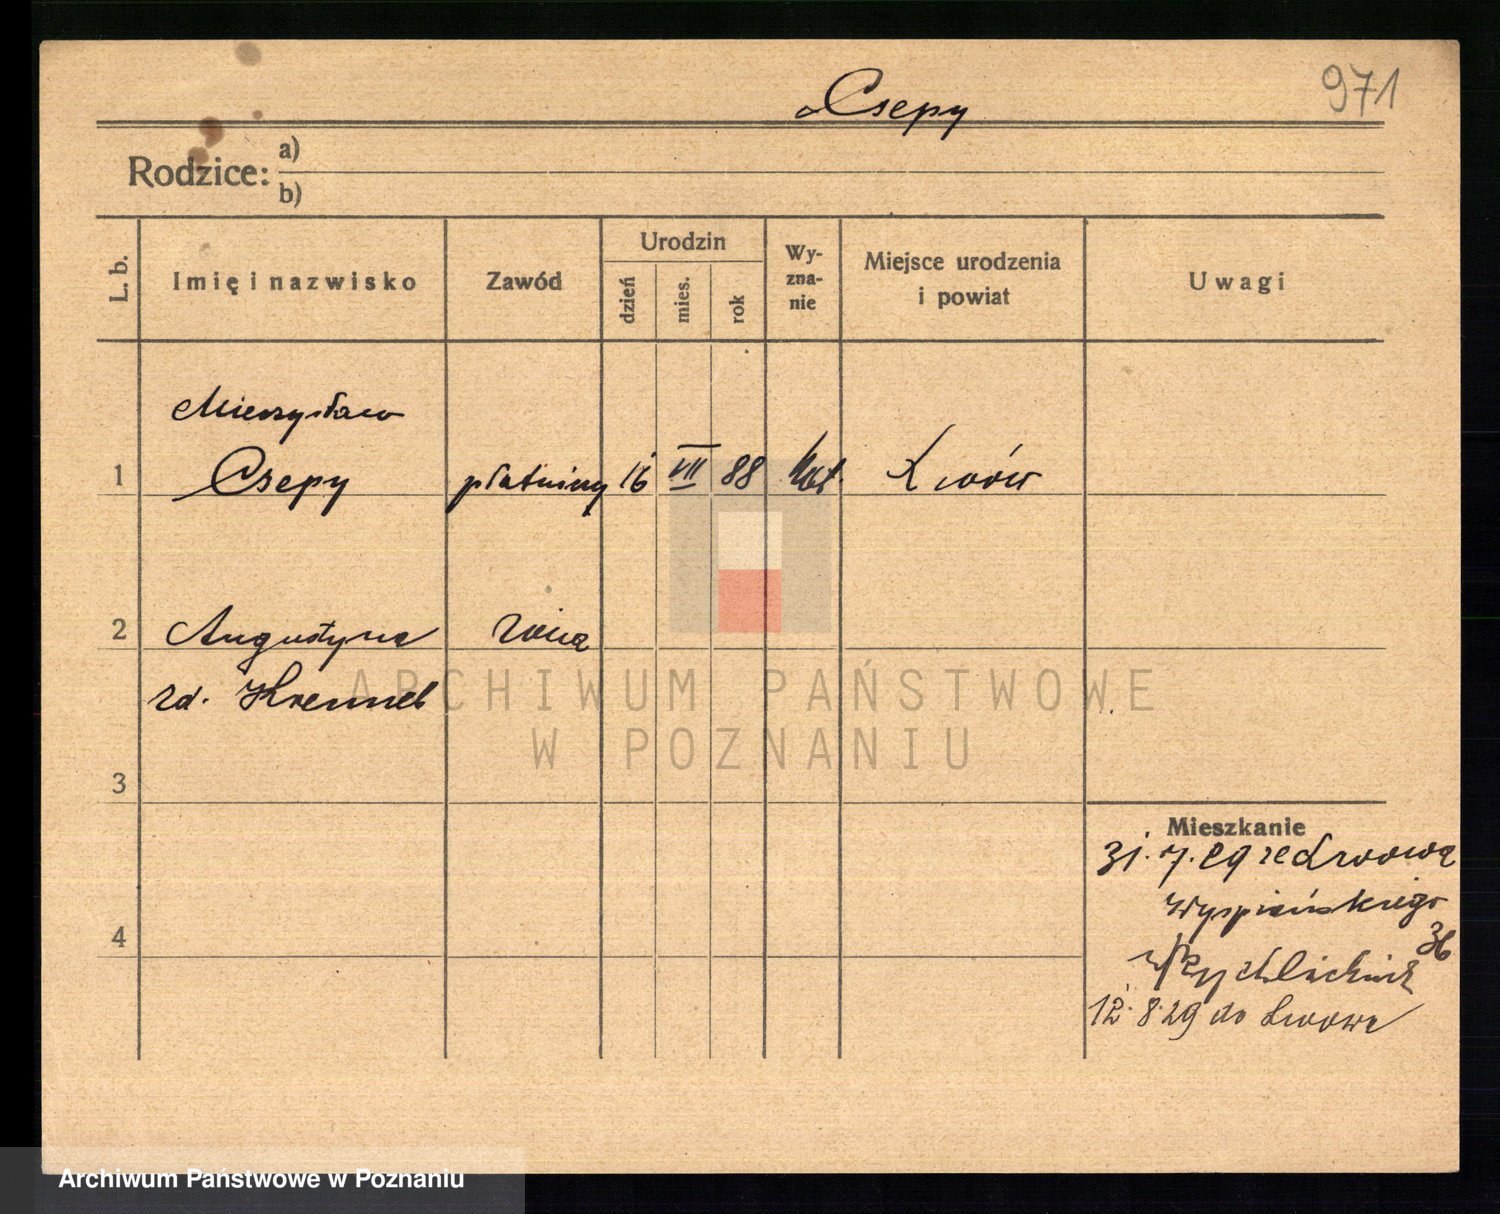 971
Csepy
Rodzice: a)
b)
L. b.
Imię i nazwisko
Zawód
Urodzin
dzień
mies.
rok
Wy-
zna-
nie
Miejsce urodzenia
i powiat
Uwagi
Mieczysław
1 Csepy płatniczy 16 VII 88 kat. Lwów
2 Augustyna żona
zd.
ARCHIWUM PAŃSTWOWE
W POZNANIU
3
Mieszkanie
31.7.29 ze Lwowa
Wyspiańskiego
36
4
12.8.29 do Lwowa
Archiwum Państwowe w Poznaniu